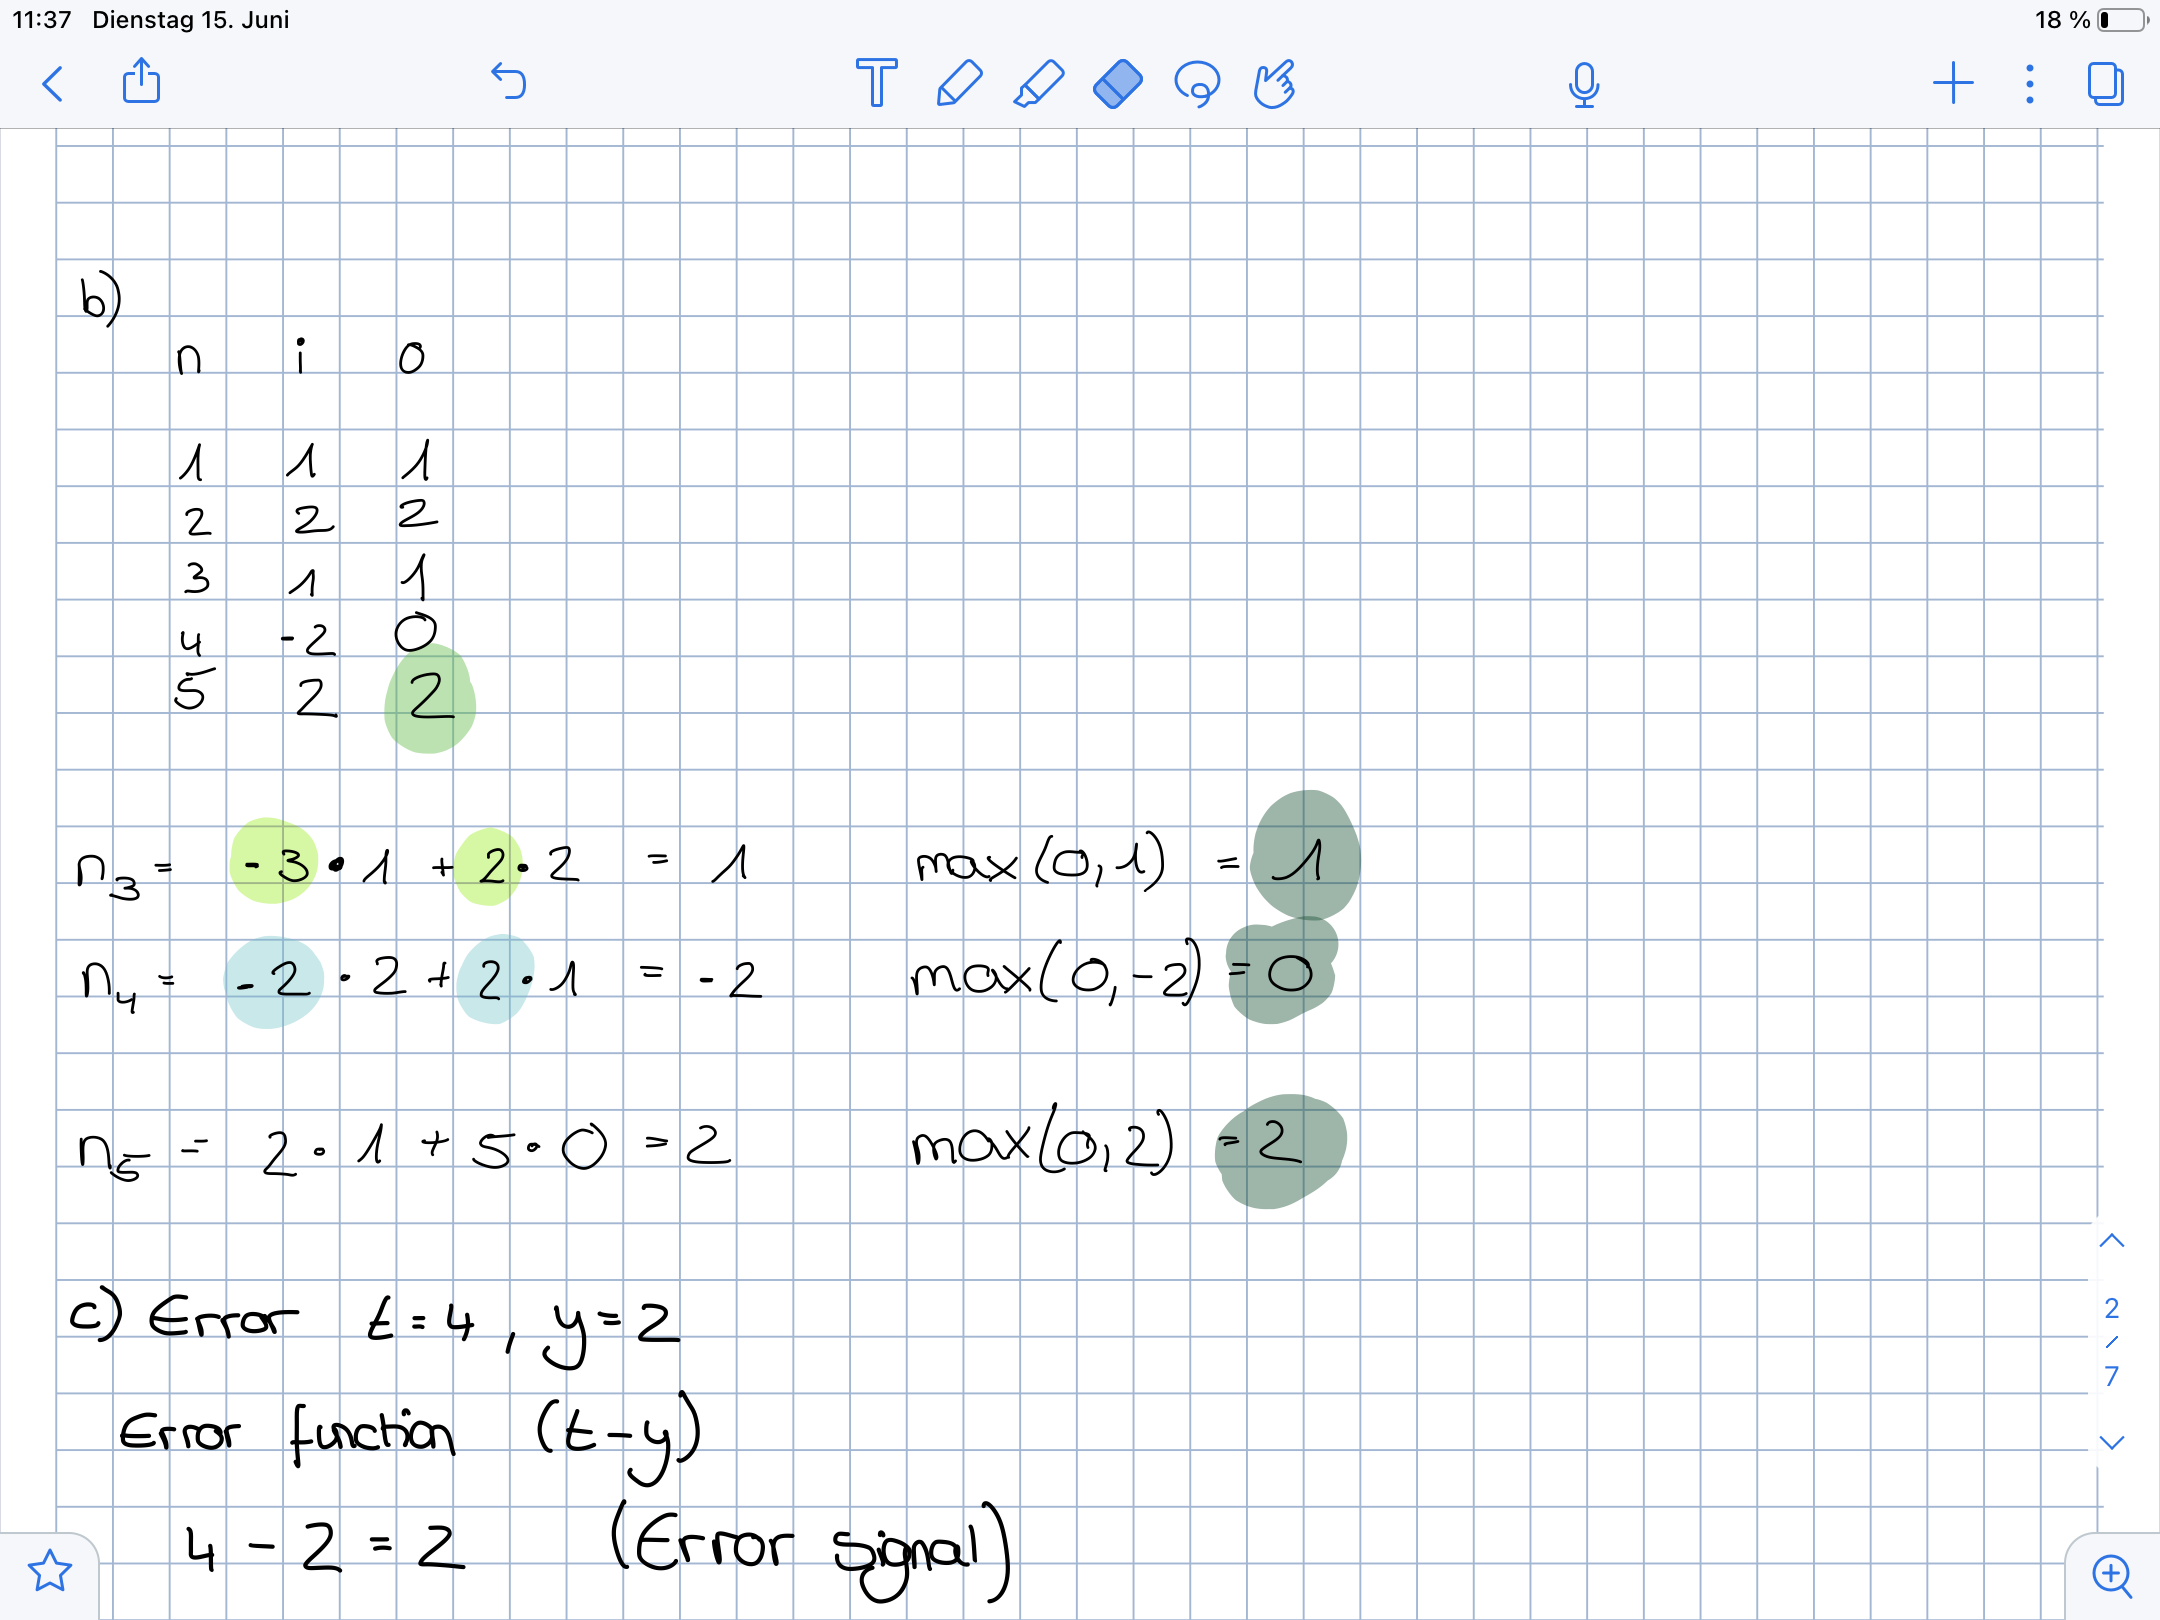 11:37 Dienstag 15. Juni 18 %
T
b)
n i o
1 1 1
2 2 2
3 1 1
4 -2 0
5 2 2
n₃ = -3 • 1 + 2 • 2 = 1 max (0, 1) = 1
n₄ = -2 • 2 + 2 • 1 = -2 max (0, -2) = 0
n₅ = 2 • 1 + 5 • 0 = 2 max (0, 2) = 2
c) Error t = 4 , y = 2
Error function (t - y)
4 - 2 = 2 (Error signal)
2
/
7